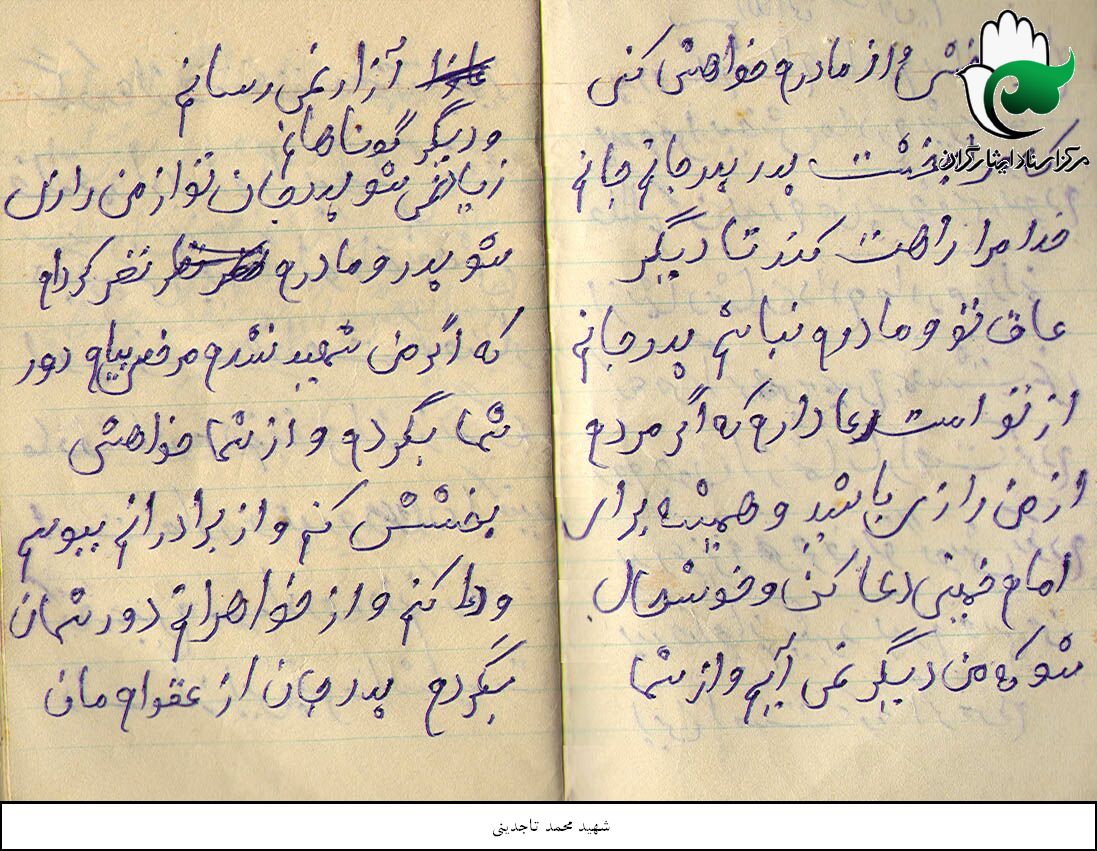 از مادرم خواهش کنی
مرکز اسناد ایثارگران
بخشت پدر پدر جانم جانم
خدا مرا راهت کند تا دیگر
عاق تو و مادرم نباشم پدر جانم
از تو است دعا دارم که اگر مردم
از من رازی باشید و همیشه برای
امام خمینی دعا کن و خوشحال
شو که من دیگر نمی آیم و از شما
آزار نمی رسانم
و دیگر گوناهانم
زیاد نمی شو پدر جان تو از من رازی
شو پدر و مادرم نضر کردام
که اگر من شهید نشدم مرخصی بیام دور
شما بگردم و از شما خواهشی
بخشش کنم و از برادرانم ببوسم
ودا کنم و از خواهرانم دور شمان
بگردم پدر جان از عقوام مان
شهید محمد تاجدینی